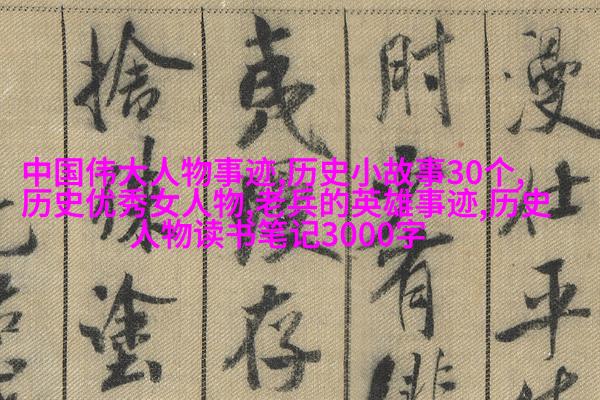 中国伟大人物事迹,历史小故事30个,
历史优秀女人物,老兵的英雄事迹,历史
人物读书笔记3000字
漫仕平
有
夷存
捨殊塗